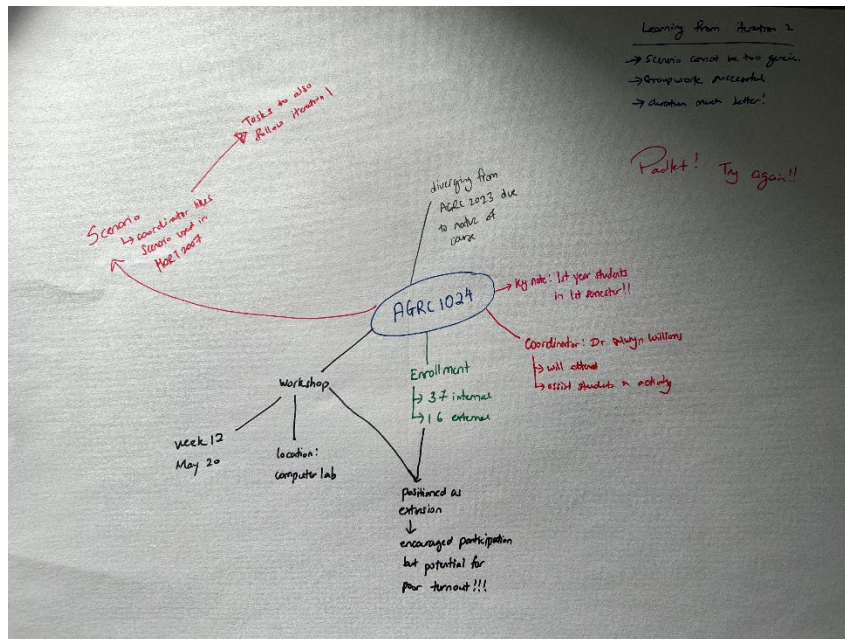 Learning from iteration 2
→ Scenario cannot be two generic
→ Groupwork successful
→ duration much better!
Padlet! Try again!!
Tasks to also
follow iteration 1
Scenario
↳ coordinator likes
Scenario used in
HORT 2007
diverging from
AGRC 2023 due
to nature of
course
AGRC 1024
Key note: 1st year students
in 1st semester!!
Coordinator: Dr Williams
↳ will attend
↳ assist students in activity
Enrollment
↳ 37 internal
↳ 16 external
workshop
week 12
May 20
location:
computer lab
positioned as
extension
↓
encouraged participation
but potential for
poor turnout!!!